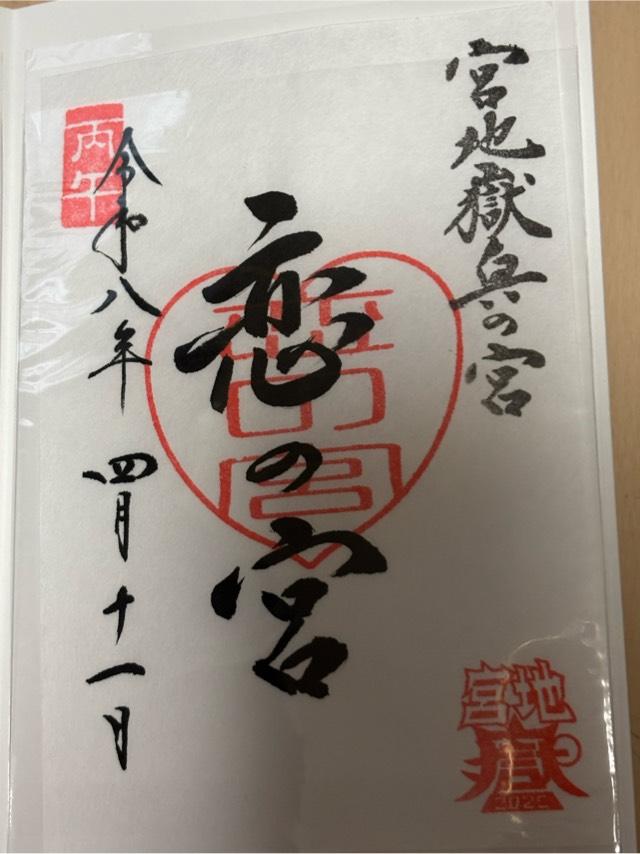 宮地嶽奥の宮
恋の宮
丙午
令和八年 四月十一日
宮地
嶽